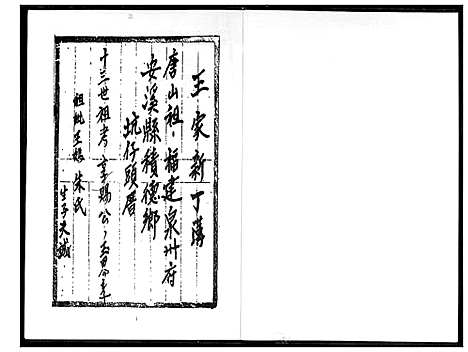 王家新丁簿
唐山祖，福建泉州府
安溪縣積德鄉
坑仔頭厝
十三世祖考 享賜公
祖妣王媽 朱氏
生子天誠